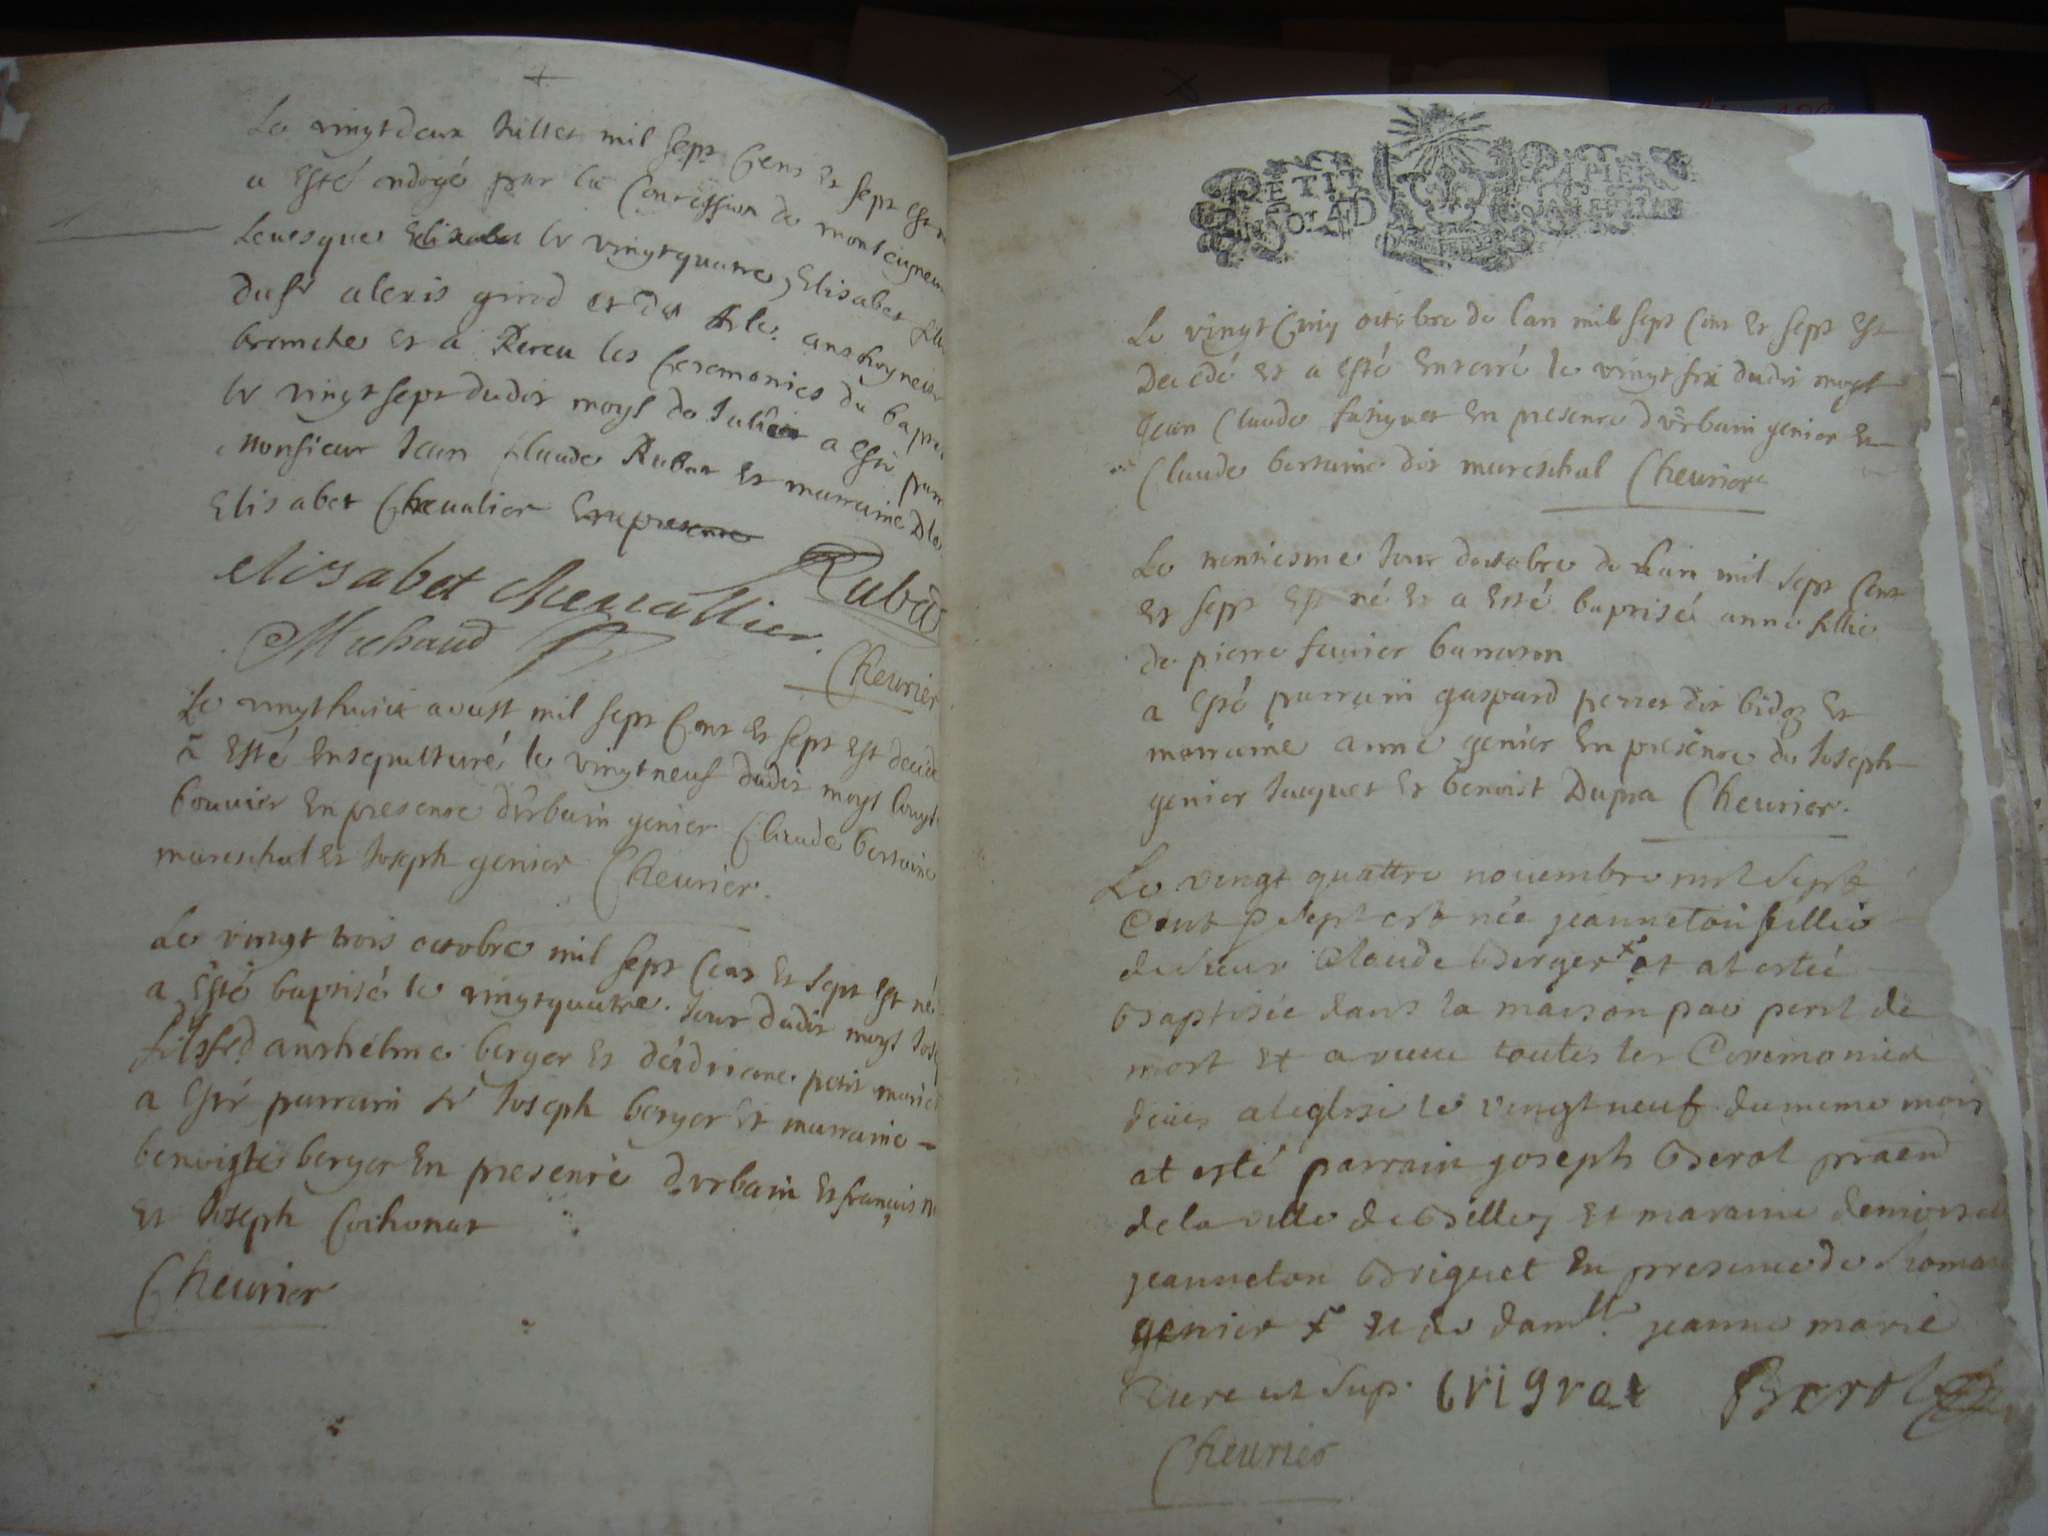 Le vingt deux Juillet mil sept Cens et sept est n
a esté ondoyé par la Concession de monseigneur
Levesque le vingtquatre, Elisabet fille
du sr alexis girod et de
et a Receu les Ceremonies du bapte
le vingt sept dudit moys de Juliet a esté parr
monsieur Jean Claude Rubat et marraine Dlle
Elisabet Chevalier En presence
elisabet Chevallier Rubat
Michaud
Cheurier
Le vingthuict aoust mil sept Cent et sept est decede
a esté Ensepulturé le vingtneuf dudit moys
bouvier En presence d'urbain genier Claude bertaine
mareschal et Joseph genier Cheurier.
Le vingt trois octobre mil sept Cens et sept est né
a esté baptisé le vingtquatre Jour dudit moys Jos
fils d'anthelme berger et petit
a esté parrain sr Joseph berger et marraine
benoiste berger En presence d'urbain et françois
et Joseph Cochonat
Cheurier
PETIT PAPIER
Le vingt Cinq octobre de lan mil sept Cens et sept est
Decedé et a esté Enterré le vingt six dudit moys
Jean Claude En presence d'urbain genier et
Claude bertaine dit mareschal Cheurier
Le trentiesme Jour doctobre de lan mil sept Cent
et sept est né et a esté baptisé anne fillie
de pierre
a esté parrain gaspard perret dit bidoz et
marraine anne genier En presence de Joseph
genier Jacquet et benoist Dupra Cheurier.
Le vingt quattre novembre mil sept
Cent sept est née jeanneton fillie
de sieur Claude Berger et at estée
Baptisée dans la maison par peril de
mort et a toutes les Ceremonies
a leglise le vingt neuf du meme mois
at esté parrain joseph Berot
de la ville de Belley et maraine demoisel
jeanneton Briguet En presence de
genier et de damlle jeanne marie
ut sup. Berot
Cheurier